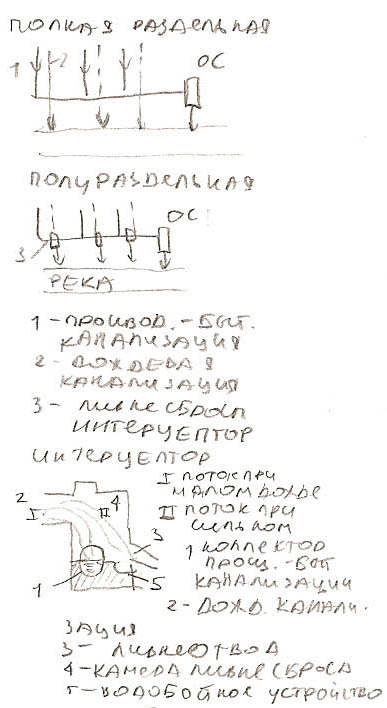 ПОЛНАЯ РАЗДЕЛЬНАЯ
1 2 ОС
ПОЛУРАЗДЕЛЬНАЯ
ОС
3
РЕКА
1 - ПРОИВОД. - БЫТ.
КАНАЛИЗАЦИЯ
2 - ДОЖДЕВАЯ
КАНАЛИЗАЦИЯ
3 - ЛИВНЕСБРОСЫ
ИНТЕРЦЕПТОР
ИНТЕРЦЕПТОР
I ПОТОК ПРИ
МАЛОМ ДОЖДЕ
II ПОТОК ПРИ
СИЛЬНОМ
1 КОЛЛЕКТОР
ПРОИЗ. - БЫТ
КАНАЛИЗАЦИИ
2 - ДОЖД. КАНАЛИ-
2 4
I II
3
1 5
ЗАЦИЯ
3 - ЛИВНЕОТВОД
4 - КАМЕРА ЛИВНЕСБРОСА
5 - ВОДОБОЙНОЕ УСТРОЙСТВО